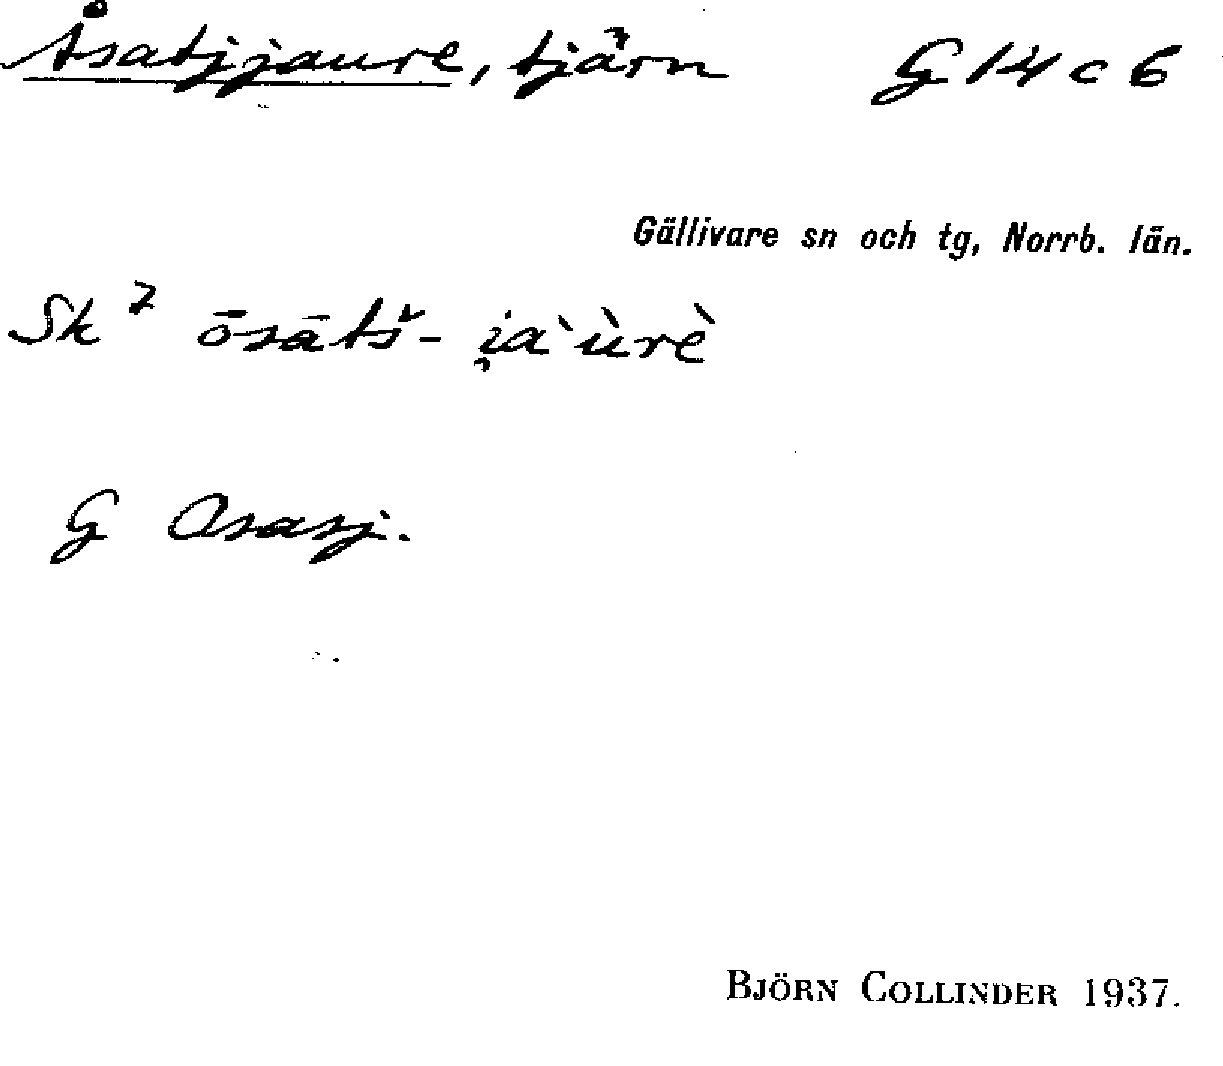 Åsatjjaure, tjärn G 14 c 6
Gällivare sn och tg, Norrb. län.
Sk 7 ōsātš- i̯a`ùrè
G Osasj.
BJÖRN COLLINDER 1937.